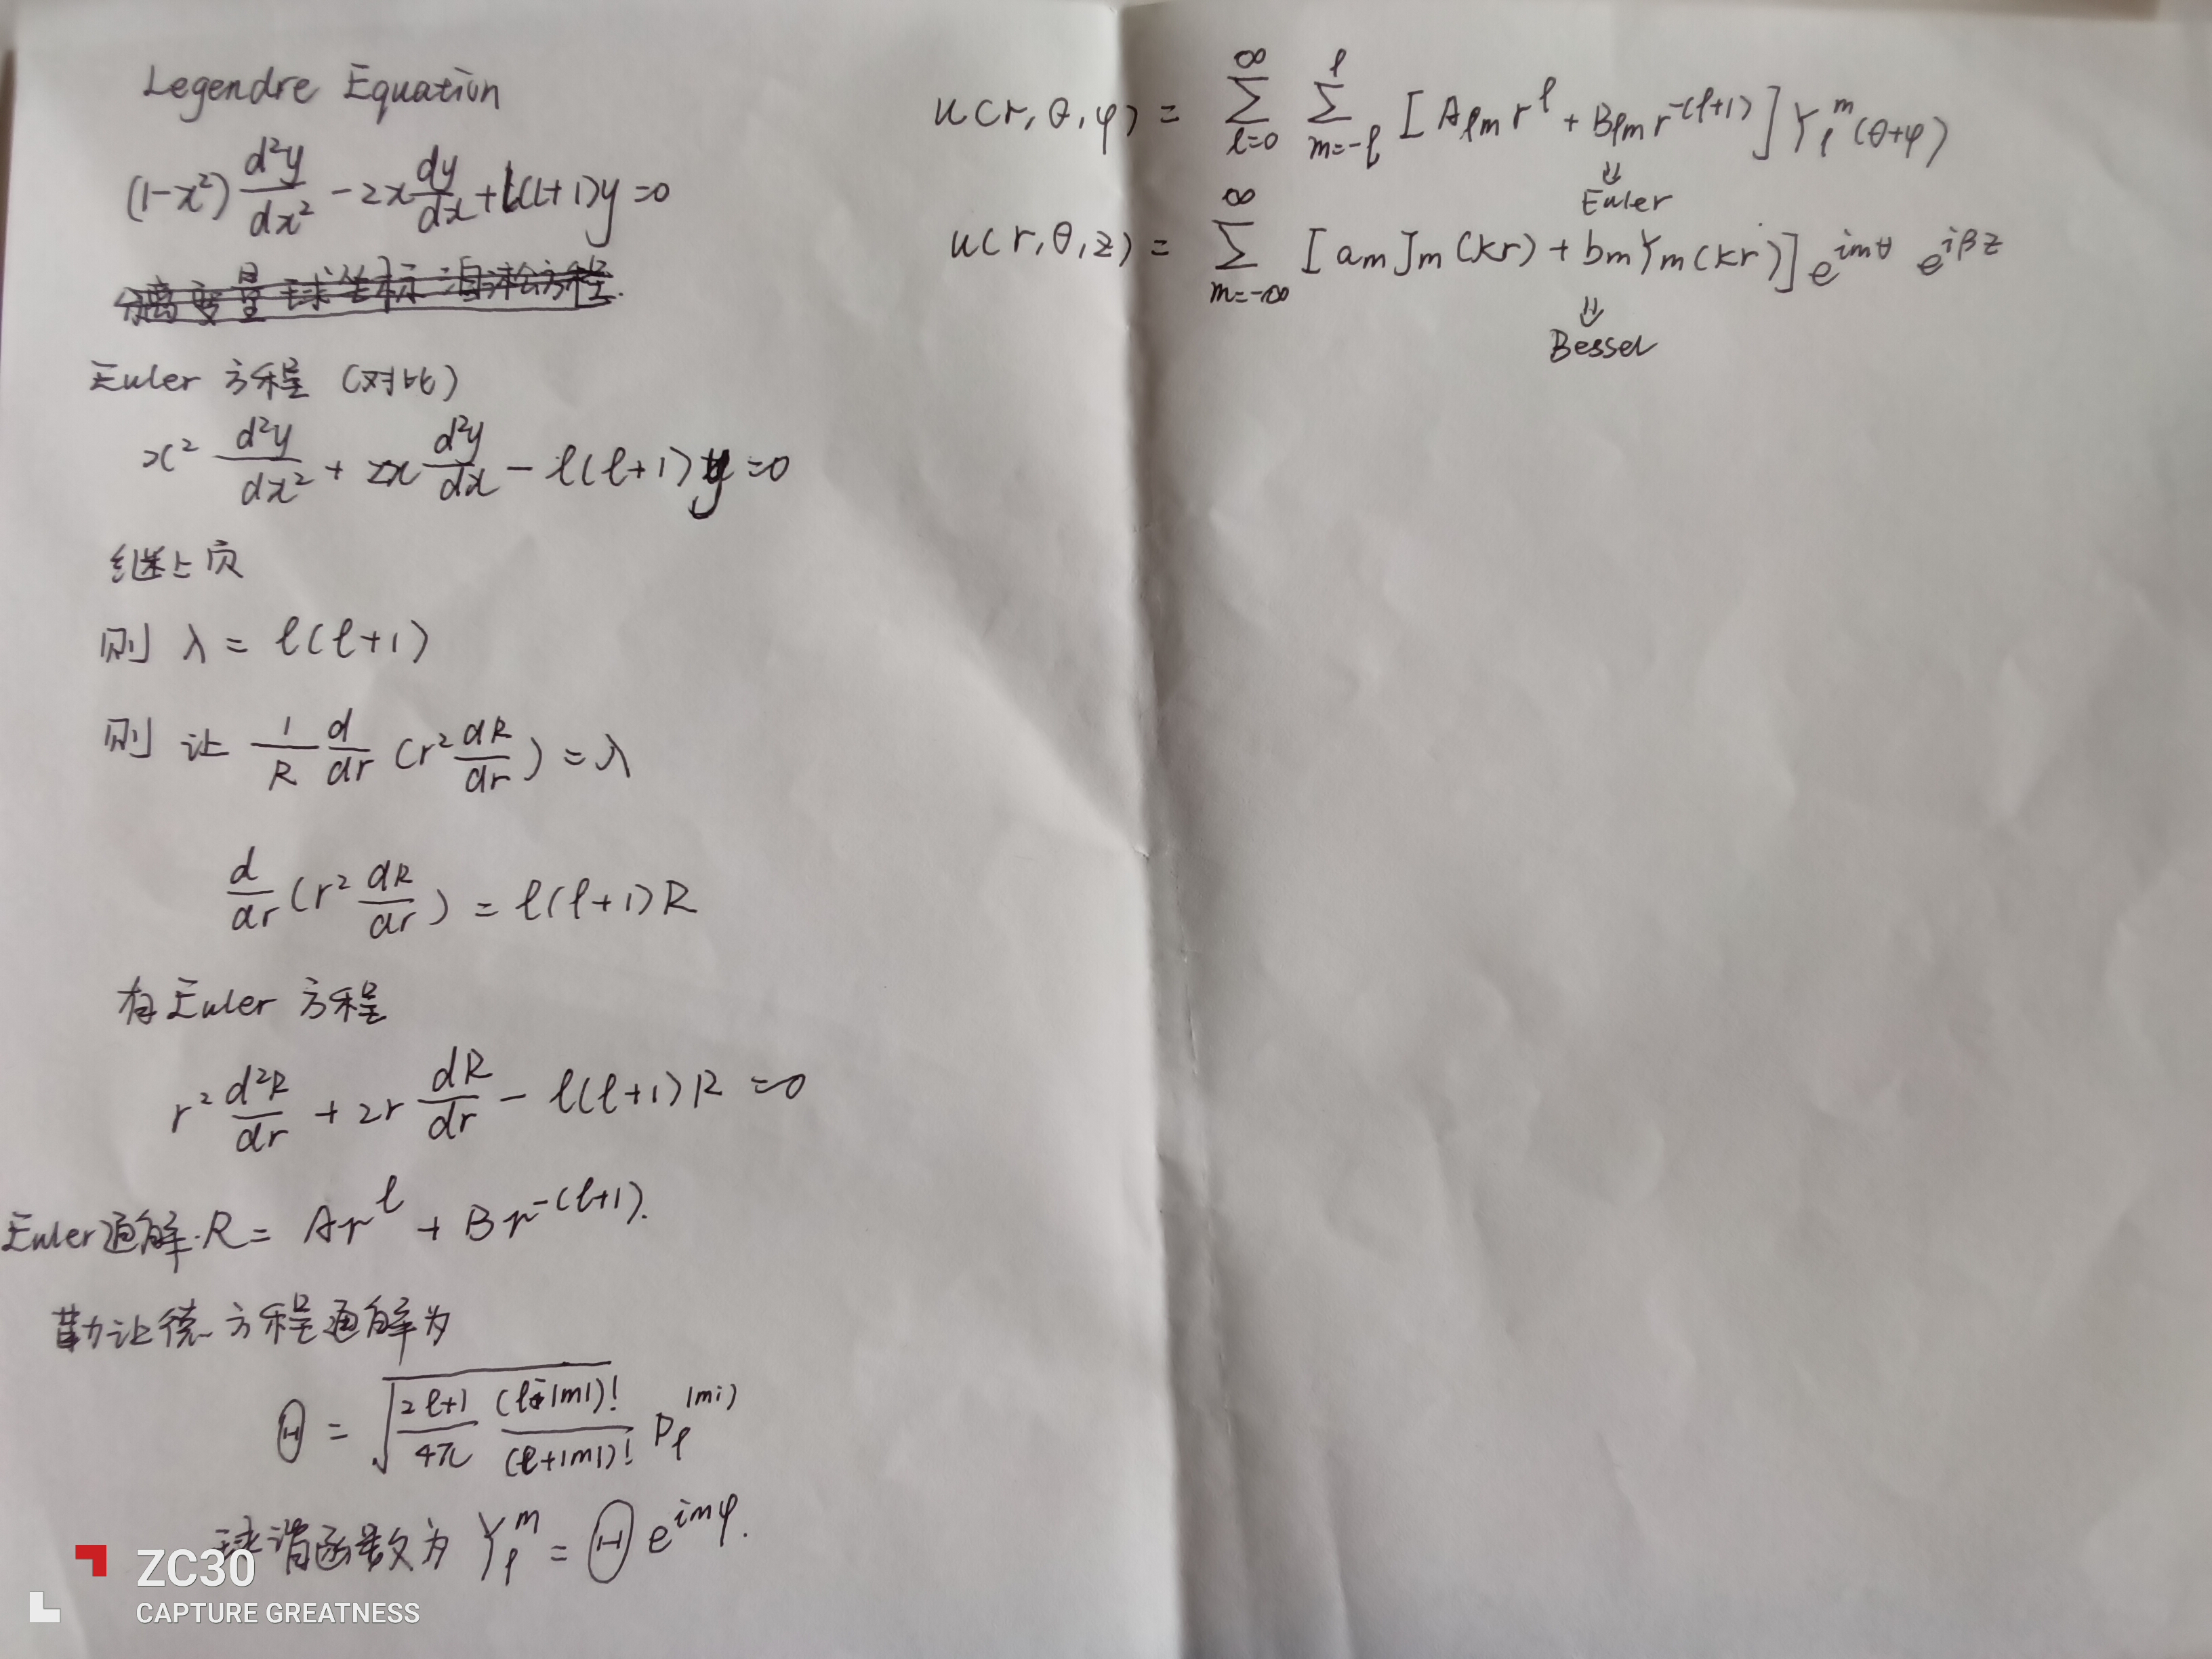 Legendre Equation
(1-x²) d²y/dx² - 2x dy/dx + l(l+1)y = 0
分离变量球坐标
Euler 方程 (对比)
x² d²y/dx² + 2x d²y/dx - ℓ(ℓ+1) y = 0
继上页
则 λ = ℓ(ℓ+1)
则 让 1/R d/dr (r² dR/dr) = λ
d/dr (r² dR/dr) = ℓ(ℓ+1) R
有 Euler 方程
r² d²R/dr + 2r dR/dr - ℓ(ℓ+1) R = 0
Euler通解·R = Ar^ℓ + Br^-(ℓ+1).
勒让德方程通解为
Θ = √(2ℓ+1/4π (ℓ-|m|)!/(ℓ+|m|)!) P_ℓ^|m|)
球谐函数为 Y_ℓ^m = Θ e^imφ.
u(r,θ,φ) = ∑_{l=0}^∞ ∑_{m=-ℓ}^ℓ [A_ℓm r^ℓ + B_ℓm r^-(ℓ+1)] Y_ℓ^m (θ+φ)
⇓
Euler
u(r,θ,z) = ∑_{m=-∞}^∞ [a_m J_m(kr) + b_m Y_m(kr)] e^imθ e^iβz
⇓
Bessel
ZC30
CAPTURE GREATNESS